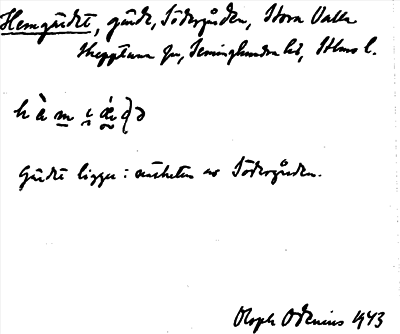 Hemgärdet, gärde, Södergården, Stora Valla
Skepptuna sn, Seminghundra hd, Sthms l.
Gärdet ligger i närheten av Södergården.
Oloph Odenius 1943